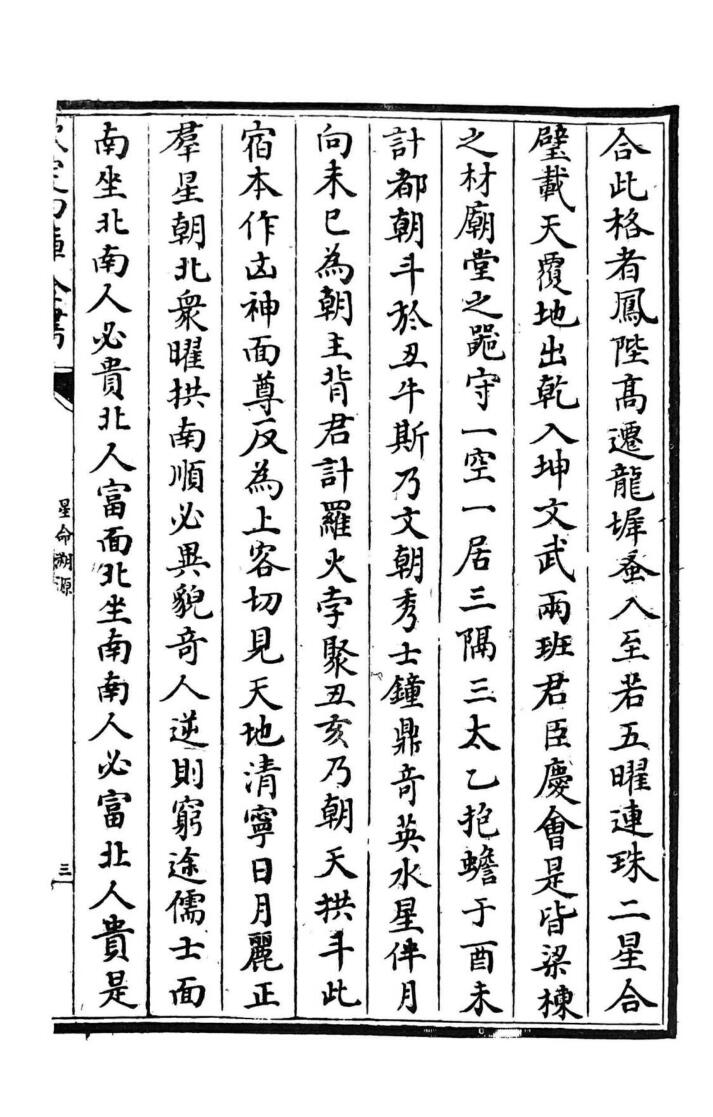 合此格者鳳陛髙遷龍墀蚤入至若五曜連珠二星合
璧載天覆地出乾入坤文武兩班君臣慶㑹是皆梁棟
之材廟堂之器守一空一居三隔三太乙抱蟾于酉未
計都朝斗於丑牛斯乃文朝秀士鐘鼎奇英水星伴月
向未巳為朝主背君計羅火孛聚丑亥乃朝天拱斗此
宿本作凶神面尊反為上客切見天地清寧日月麗正
羣星朝北衆曜拱南順必異貌奇人逆則窮途儒士面
南坐北南人必貴北人富面北坐南南人必富北人貴是
欽定四庫全書
星命溯源
三